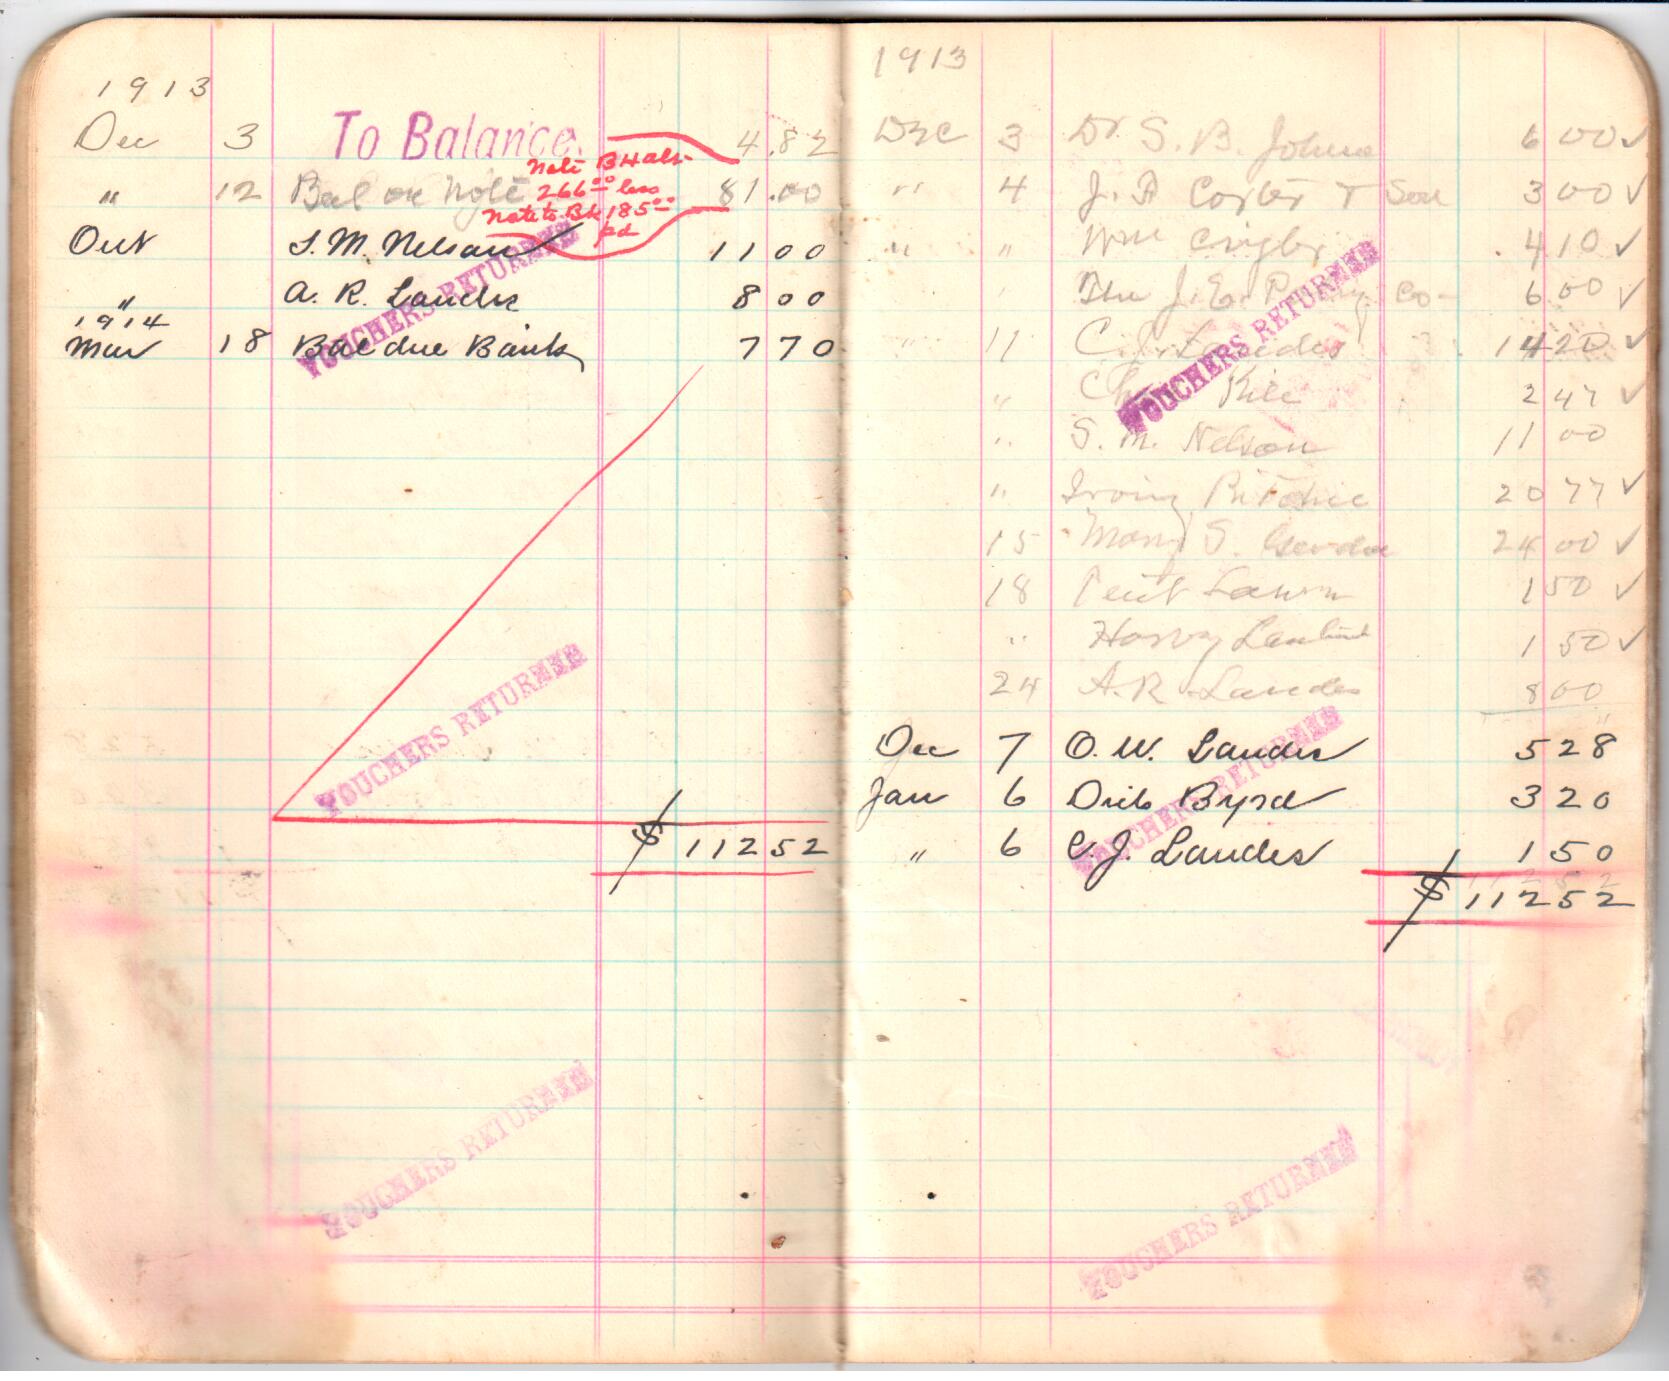 1913
Dec 3 To Balance. 4.82
" 12 Bal on Note 81.00
Note B Hal
266 00 less
Note to Bk 185 00
pd
Out S. M. Nelson 11 00
" A. R. Landes 8 00
1914
Mar 18 Bal due Bank 7 70
VOUCHERS RETURNED
VOUCHERS RETURNED
$ 112 52
VOUCHERS RETURNED
1913
Dec 3 Dr. S. B. Johns 6 00 ✓
" 4 J. A. & Son 3 00 ✓
" " Wm 4 10 ✓
The J. E. Co 6 00 ✓
" 11 C. J. Landes 14 20 ✓
" Rice 2 47 ✓
" S. M. Nelson 11 00
" Irving Ritchie 20 77 ✓
15 Mary S. 24 00 ✓
18 1 50 ✓
" Harvey 1 50 ✓
24 A. R. Landes 8 00
Dec 7 O. W. Landes 5 28
Jan 6 Byrd 3 20
" 6 C. J. Landes 1 50
$ 112 52
VOUCHERS RETURNED
VOUCHERS RETURNED
VOUCHERS RETURNED